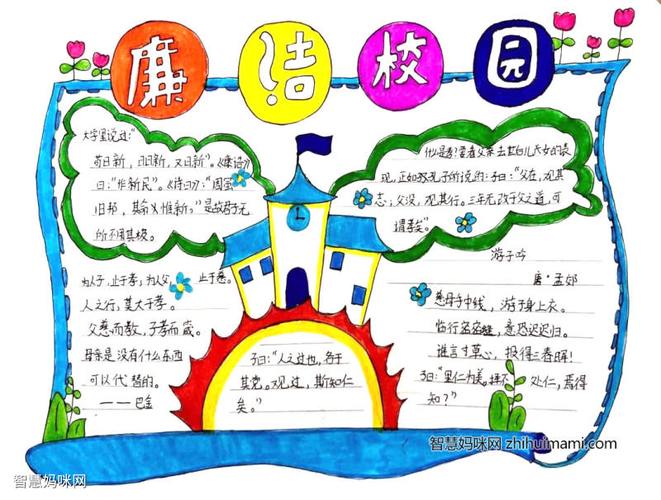 廉洁校园
大学里说过:"
苟日新,日日新,又日新"。《康诰》
曰:"作新民"。《诗曰》:"周虽
旧邦,其命惟新。"是故君子无
所不用其极。
为人子,止于孝;为人父,止于慈。
人之行,莫大于孝。
父慈而教,子孝而箴。
母亲是没有什么东西
可以代替的。
——巴金
子曰:"人之过也,各于
其党。观过,斯知仁
矣。"
现,正如孔子所说的:子曰:"父在,观其
志;父没,观其行。三年无改于父之道,可
谓孝矣"。
游子吟
唐·孟郊
慈母手中线,游子身上衣。
临行密密缝,意恐迟迟归。
谁言寸草心,报得三春晖!
子曰:"里仁为美。择不处仁,焉得
知?"
智慧妈咪网 zhihuimami.com
智慧妈咪网